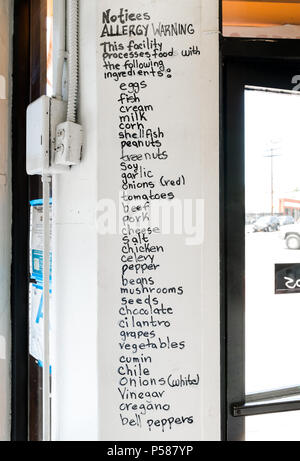 Notices
ALLERGY WARNING
This facility
processes food with
the following
ingredients:
eggs
fish
cream
milk
corn
shellfish
peanuts
treenuts
soy
garlic
onions (red)
tomatoes
beef
pork
cheese
salt
chicken
celery
pepper
beans
mushrooms
seeds
chocolate
cilantro
grapes
vegetables
cumin
chile
Onions (white)
Vinegar
oregano
bell peppers
alamy
alamy stock photo